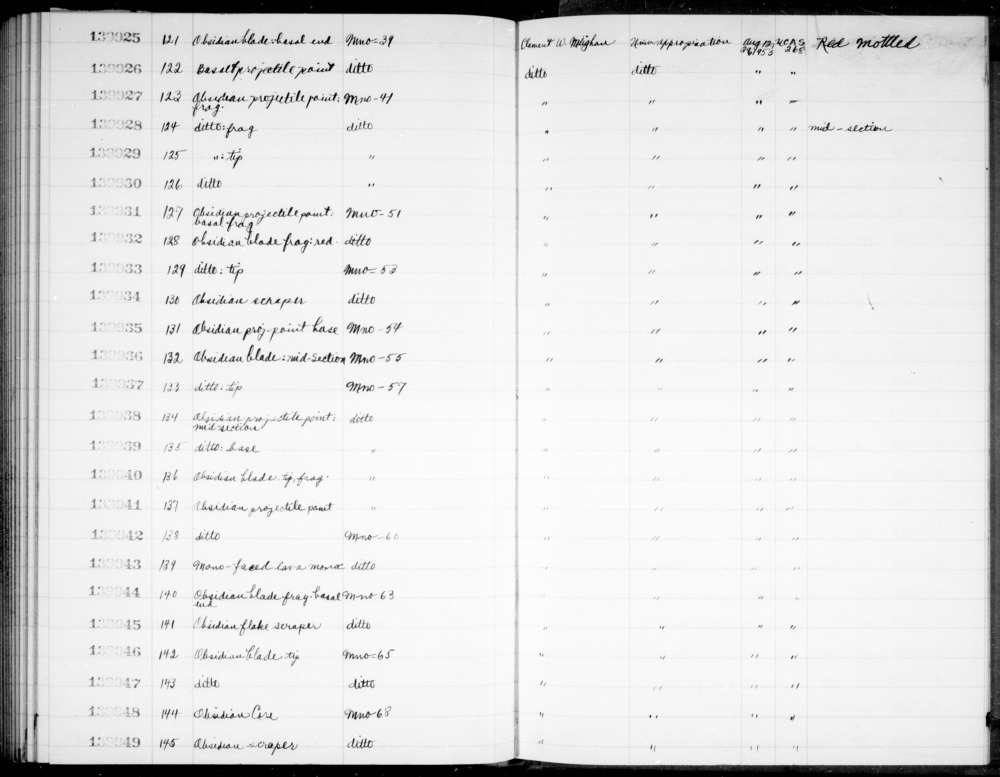 139925 121 Obsidian blade: basal end Mno-39 Clement W. Meighan Univ. appropriation Aug 12, 1953 UCAS 268 Red mottled
139926 122 Basalt projectile point ditto ditto ditto " "
139927 123 Obsidian projectile point: Mno-41 " " " "
frag.
139928 124 ditto: frag ditto " " " " mid-section
139929 125 ": tip " " " " "
139930 126 ditto " " " " "
139931 127 Obsidian projectile point: Mno-51 " " " "
basal frag
139932 128 Obsidian blade frag: red. ditto " " " "
139933 129 ditto: tip Mno-53 " " " "
139934 130 Obsidian scraper ditto " " " "
139935 131 Obsidian proj-point base Mno-54 " " " "
139936 132 Obsidian blade: mid-section Mno-55 " " " "
139937 133 ditto: tip Mno-57 " " " "
139938 134 Obsidian projectile point: ditto " " " "
mid-section
139939 135 ditto: base " " " " "
139940 136 Obsidian blade tip, frag. " " " " "
139941 137 Obsidian projectile point " " " " "
139942 138 ditto Mno-60 " " " "
139943 139 Mono-faced lava mano ditto " " " "
139944 140 Obsidian blade frag: basal Mno-63 " " " "
end
139945 141 Obsidian flake scraper ditto " " " "
139946 142 Obsidian blade tip Mno-65 " " " "
139947 143 ditto ditto " " " "
139948 144 Obsidian Core Mno-68 " " " "
139949 145 Obsidian scraper ditto " " " "